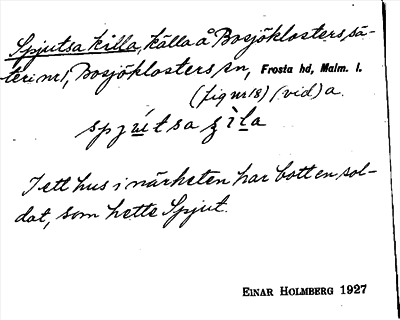 Spjutsa killa, källa å Bosjöklosters sä-
teri nr 1, Bosjöklosters sn, Frosta hd, Malm. l.
(fig nr 18) (vid) a.
spjútsa ʒìla
I ett hus i närheten har bott en sol-
dat, som hette Spjut.
EINAR HOLMBERG 1927